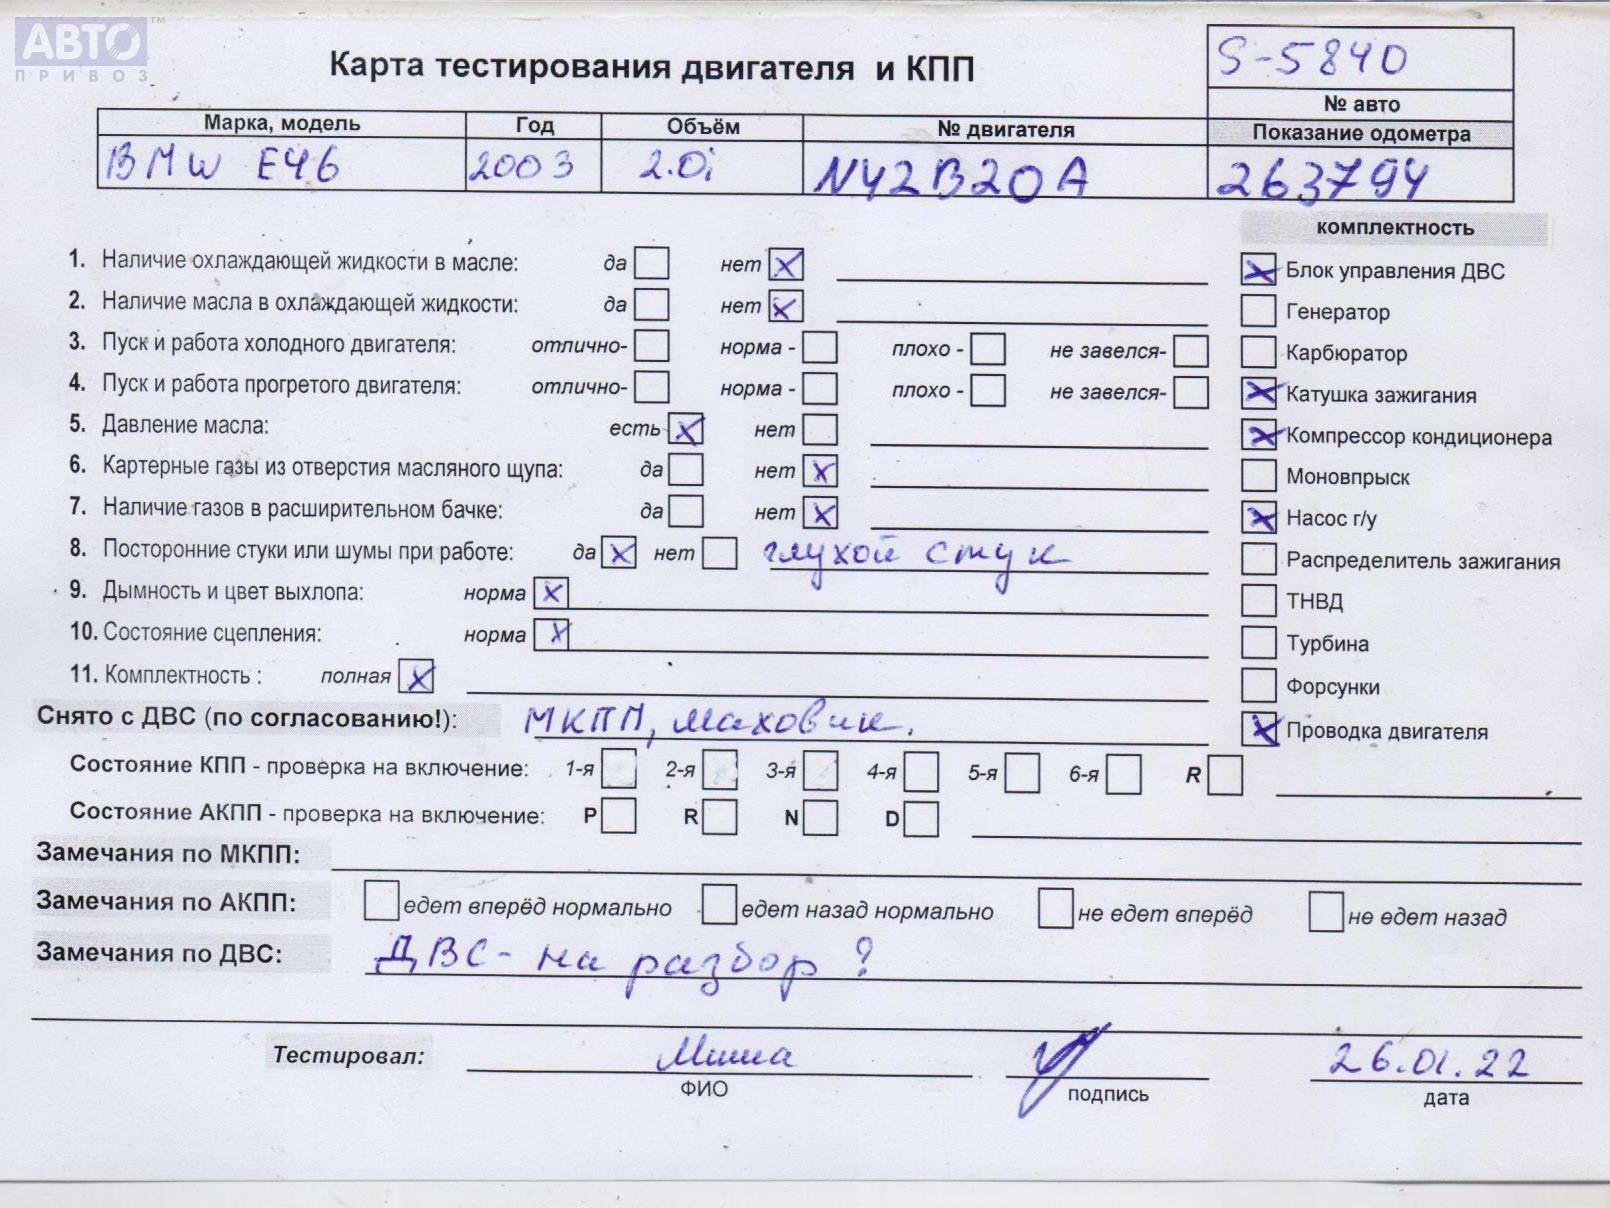 АВТО™
ПРИВОЗ
Карта тестирования двигателя и КПП
S-5840
№ авто
Марка, модель Год Объём № двигателя Показание одометра
BMW E46 2003 2.0i N42B20A 263794
комплектность
1. Наличие охлаждающей жидкости в масле: да нет X
Блок управления ДВС X
2. Наличие масла в охлаждающей жидкости: да нет X
Генератор
3. Пуск и работа холодного двигателя: отлично- норма - плохо - не завелся-
Карбюратор
4. Пуск и работа прогретого двигателя: отлично- норма - плохо - не завелся-
X Катушка зажигания
5. Давление масла: есть X нет
X Компрессор кондиционера
6. Картерные газы из отверстия масляного щупа: да нет X
Моновпрыск
7. Наличие газов в расширительном бачке: да нет X
X Насос г/у
8. Посторонние стуки или шумы при работе: да X нет глухой стук
Распределитель зажигания
9. Дымность и цвет выхлопа: норма X
ТНВД
10. Состояние сцепления: норма X
Турбина
11. Комплектность : полная X
Форсунки
Снято с ДВС (по согласованию!): МКПП, маховик.
X Проводка двигателя
Состояние КПП - проверка на включение: 1-я 2-я 3-я 4-я 5-я 6-я R
Состояние АКПП - проверка на включение: P R N D
Замечания по МКПП:
Замечания по АКПП: едет вперёд нормально едет назад нормально не едет вперёд не едет назад
Замечания по ДВС: ДВС - на разбор?
Тестировал: Миша 26.01.22
ФИО подпись дата